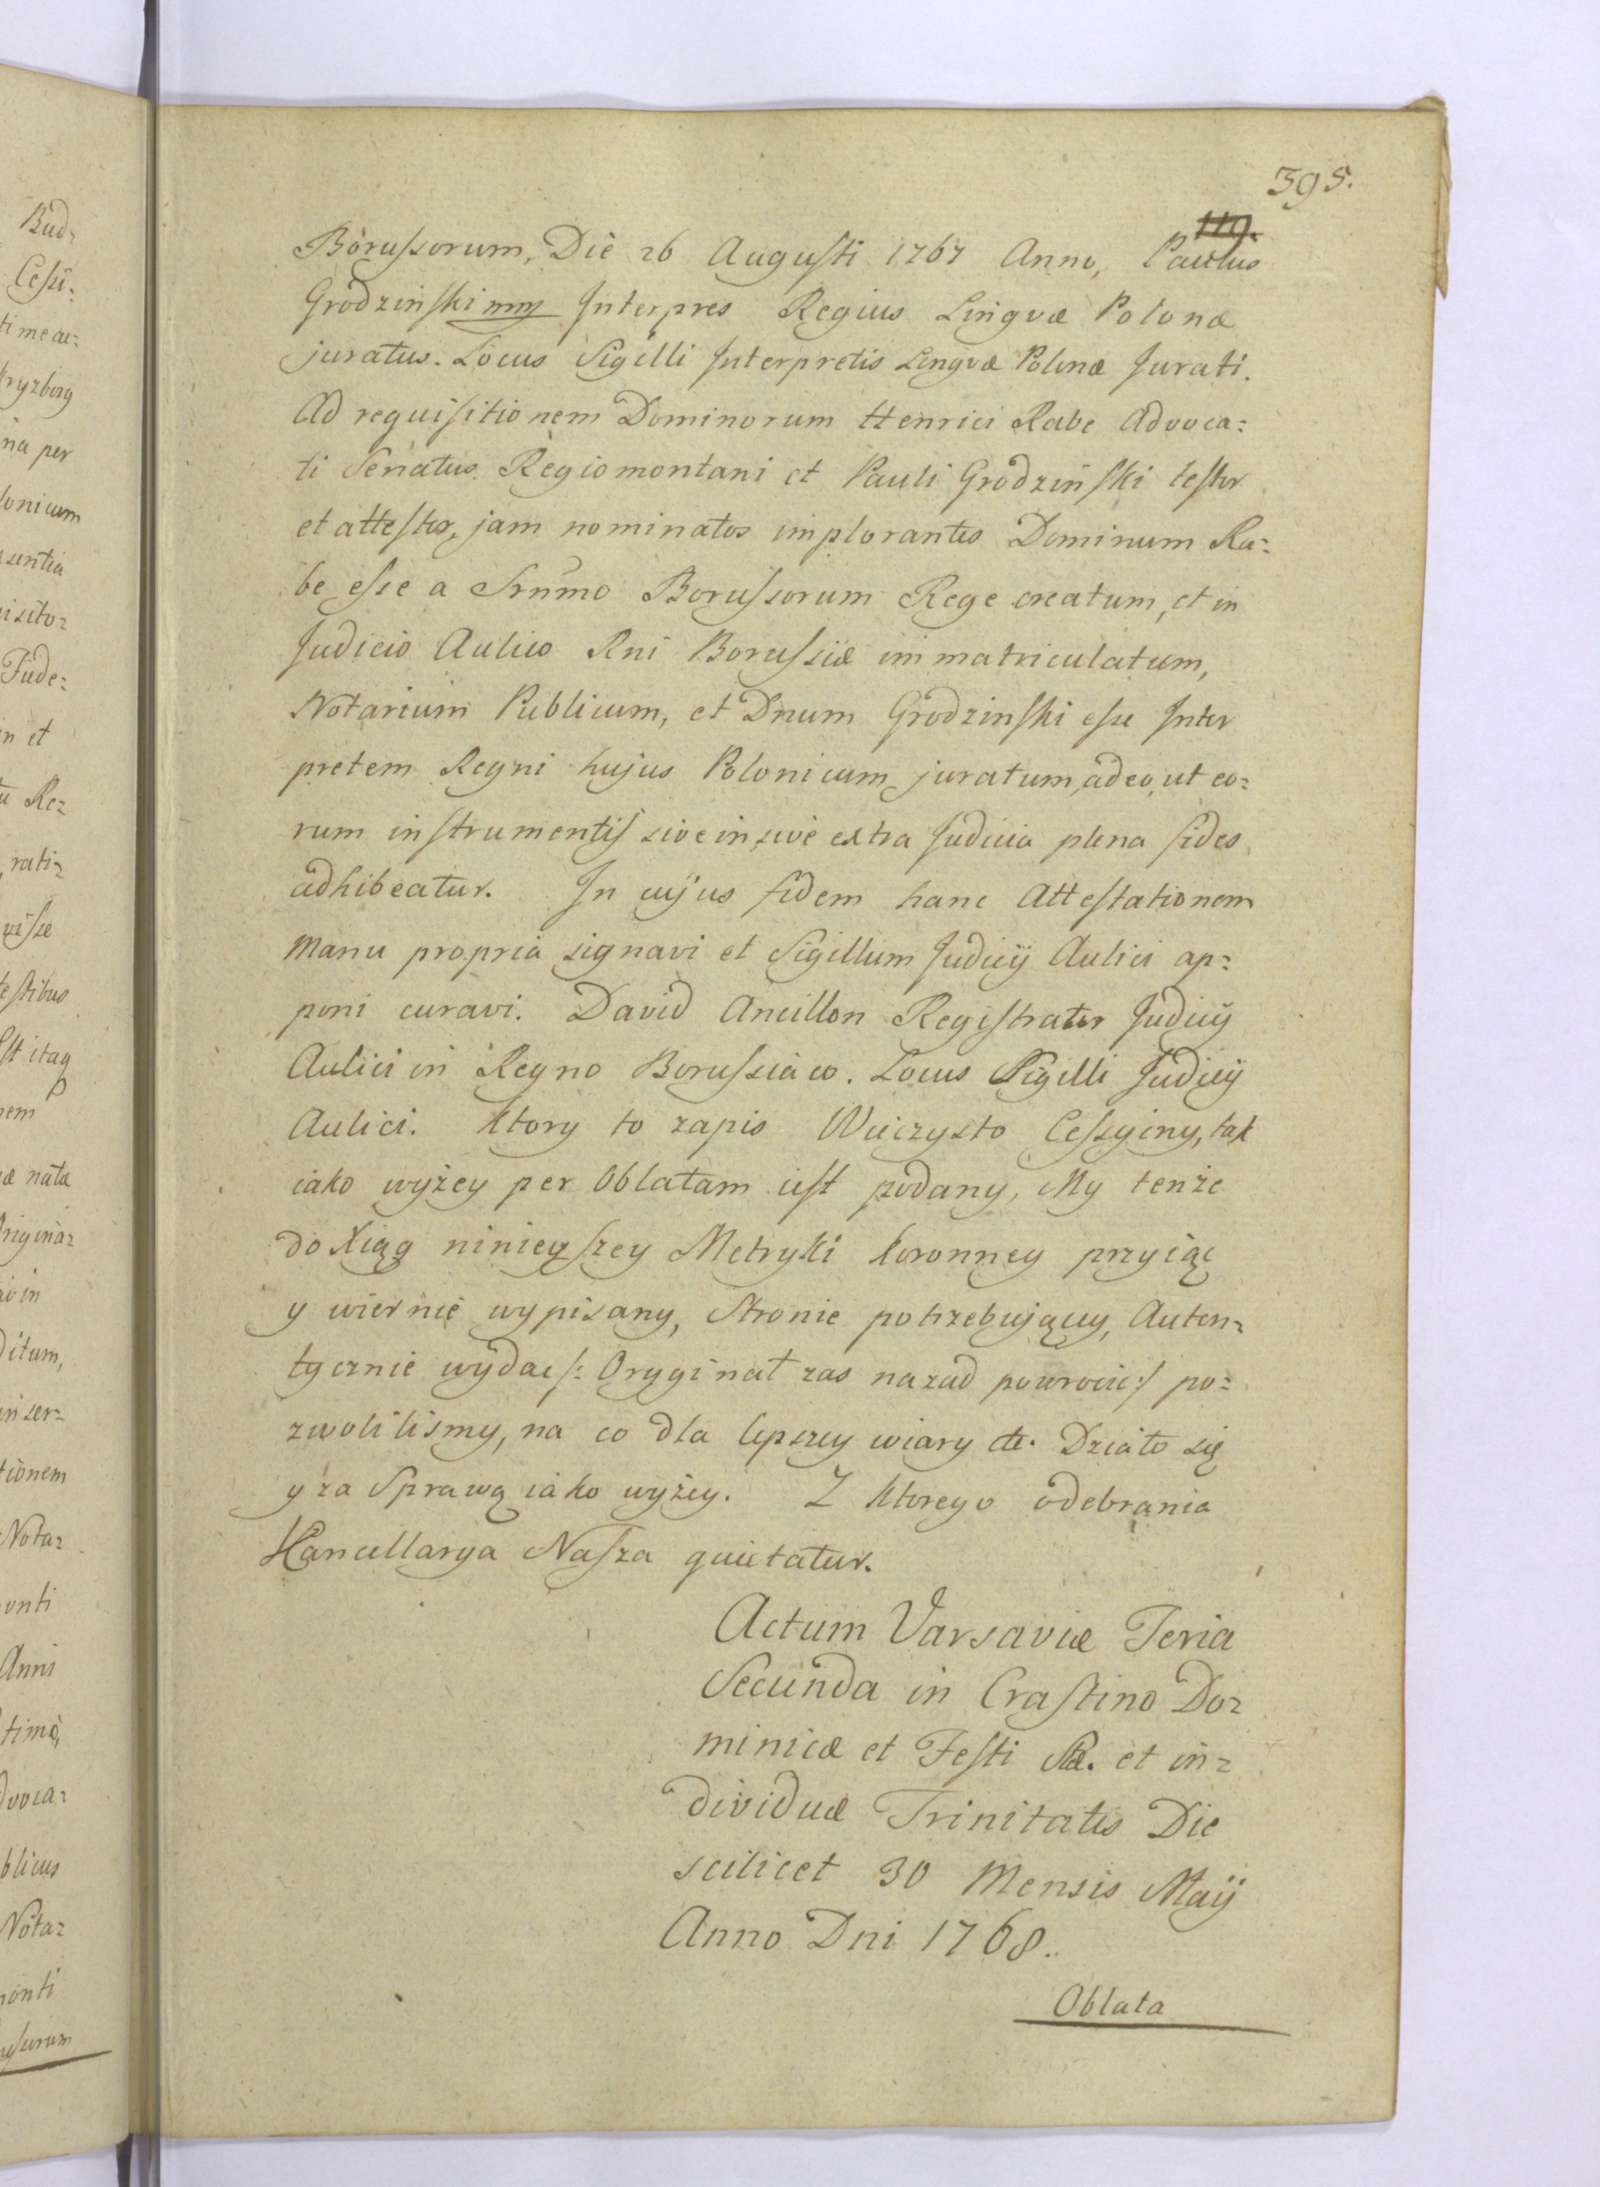 395.
119.
Borussorum, Die 26 Augusti 1767 Anno, Paulus
Grodzinski mp Interpres Regius Lingvæ Polonæ
juratus. Locus Sigilli Interpretis Lingvæ Polonæ Jurati.
Ad requisitionem Dominorum Henrici Rabe Advoca:
ti Senatus Regiomontani et Pauli Grodzinski testor
et attestor, jam nominatos implorantes Dominum Ra:
be esse a Srnmo Borussorum Rege creatum, et in
Judicio Aulico Rni Borussiæ immatriculatum,
Notarium Publicum, et Dnum Grodzinski esse Inter
pretem Regni hujus Polonicum juratum, adeo, ut eo:
rum instrumentis sive in, sive extra Judicia plena fides
adhibeatur. In cujus fidem hanc Attestationem
Manu propria signavi et Sigillum Judicij Aulici ap:
poni curavi. David Ancillon Registrator Judicij
Aulici in Regno Borussiaco. Locus Sigilli Judicij
Aulici. Ktory to zapis Wieczysto Cessyiny, tak
iako wyżey per Oblatam iest podany, My tenże
do Xiąg ninieyszey Metryki Koronney przyiąć
y wiernie wypisany, Stronie potrzebuiącey, Auten:
tycznie wydać /: Oryginał zas nazad powrocic :/ po:
zwolilismy, na co dla lepszey wiary etc. Działo się
y za Sprawą iako wyżey. Z ktorego odebrania
Kancellarya Nasza quietatur.
Actum Varsaviæ Feria
Secunda in Crastino Do:
minicæ et Festi SSæ. et in:
dividuæ Trinitatis Die
scilicet 30 Mensis Maij
Anno Dni 1768.
Oblata